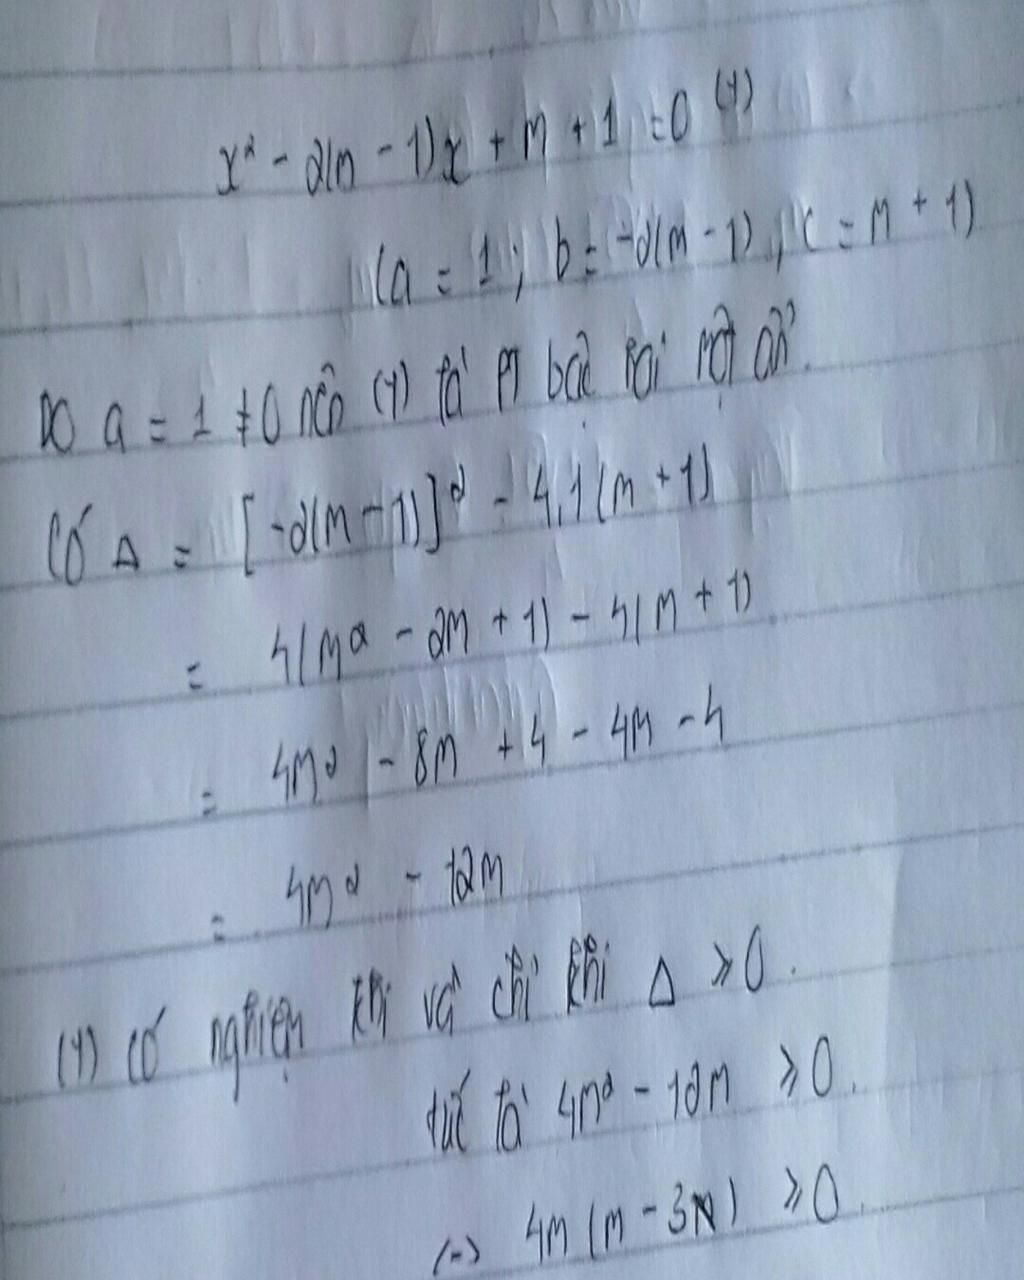 x² - 2(m - 1)x + m + 1 = 0 (1)
(a = 1; b = -2(m - 1), c = m + 1)
Do a = 1 ≠ 0 nên (1) là PT bậc hai một ẩn.
Có Δ = [-2(m - 1)]² - 4.1(m + 1)
= 4(m² - 2m + 1) - 4(m + 1)
= 4m² - 8m + 4 - 4m - 4
= 4m² - 12m
(1) có nghiệm khi và chỉ khi Δ ≥ 0.
tức là 4m² - 12m ≥ 0.
(-) 4m (m - 3m) ≥ 0.